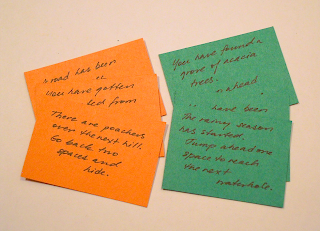 a road has been
you have gotten
led from
There are poachers
over the next hill.
Go back two
spaces and
hide.
You have found a
grove of acacia
trees.
ahead
have been
The rainy season
has started.
Jump ahead one
space to reach
the next
waterhole.